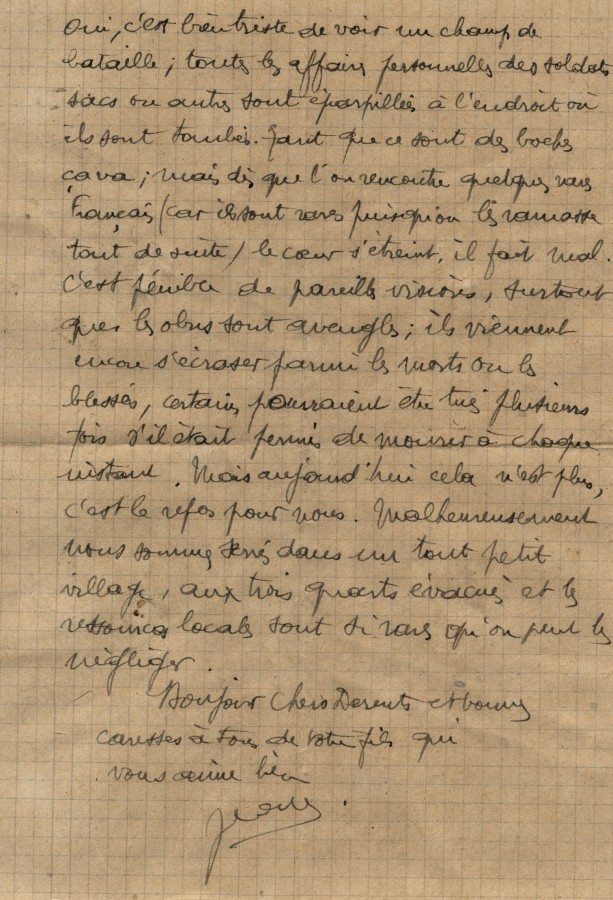 Oui, c'est bien triste de voir un champ de
bataille ; toutes les affaires personnelles des soldats
sacs ou autres sont éparpillés à l'endroit où
ils sont tombés. Tant que ce sont des boches
ça va ; mais dès que l'on rencontre quelques rares
Français (car ils sont rares puisqu'on les ramasse
tout de suite) le cœur s'étreint, il fait mal.
C'est pénible de pareilles visions, surtout
que les obus sont aveugles ; ils viennent
encore s'écraser parmi les morts ou les
blessés, certains pourraient être tués plusieurs
fois s'il était permis de mourir à chaque
instant. Mais aujourd'hui cela n'est plus,
c'est le repos pour nous. Malheureusement
nous sommes serrés dans un tout petit
village, aux trois quarts évacué et les
ressources locales sont si rares qu'on peut les
négliger.
Bonjour Chers Parents et bonnes
caresses à tous de votre fils qui
vous aime bien